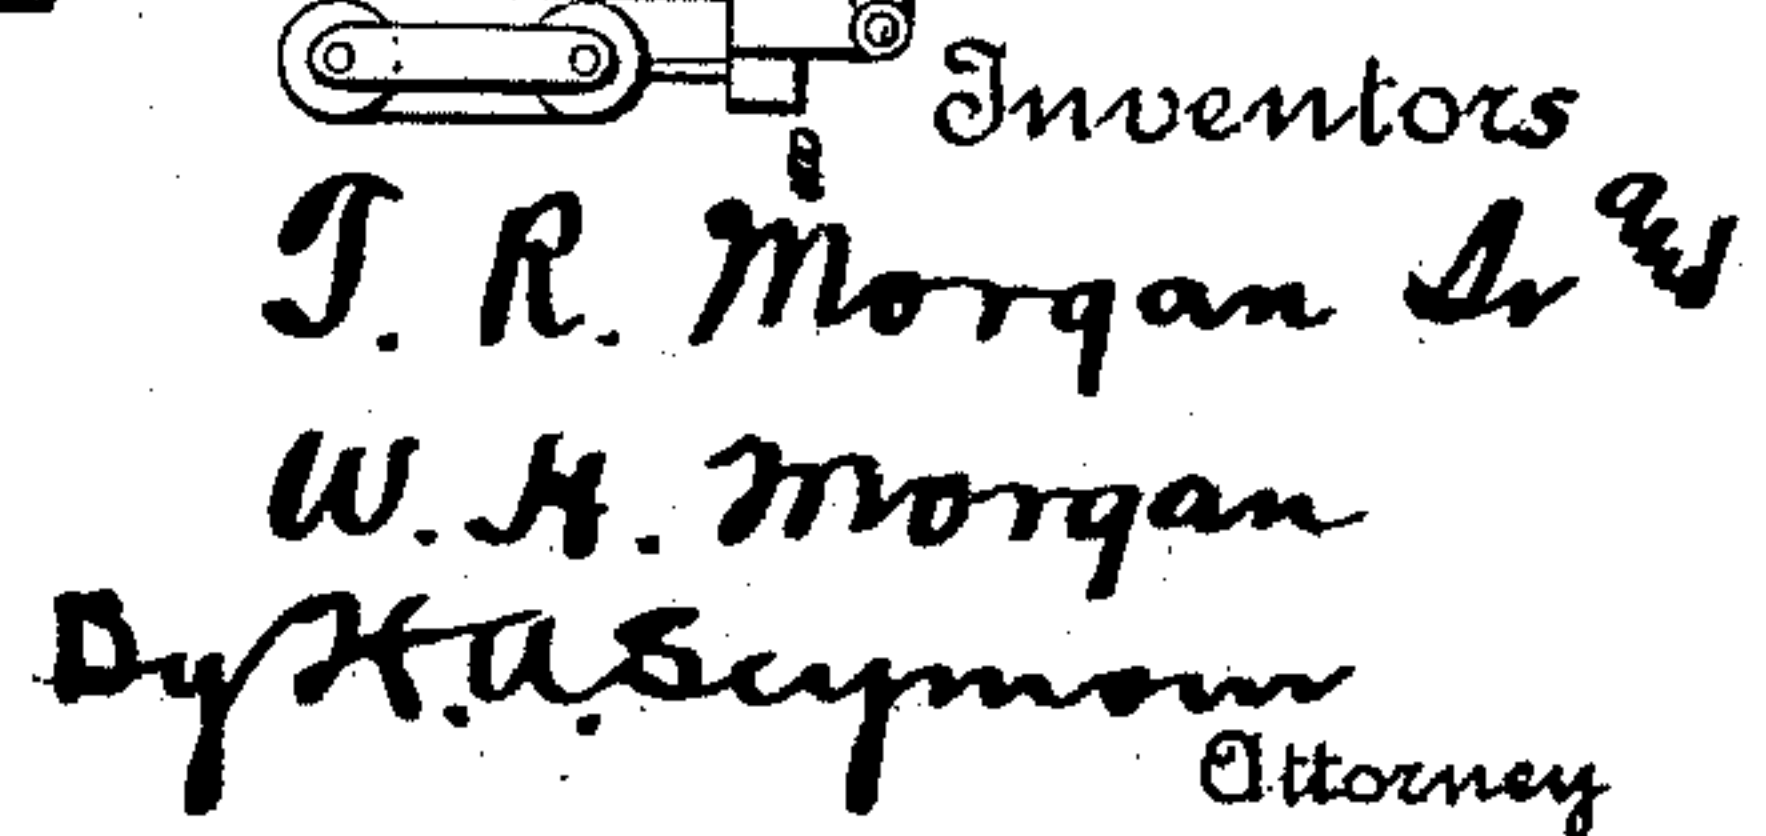 Inventors
T. R. Morgan Sr and
W. H. Morgan
By H. A. Seymour
Attorney